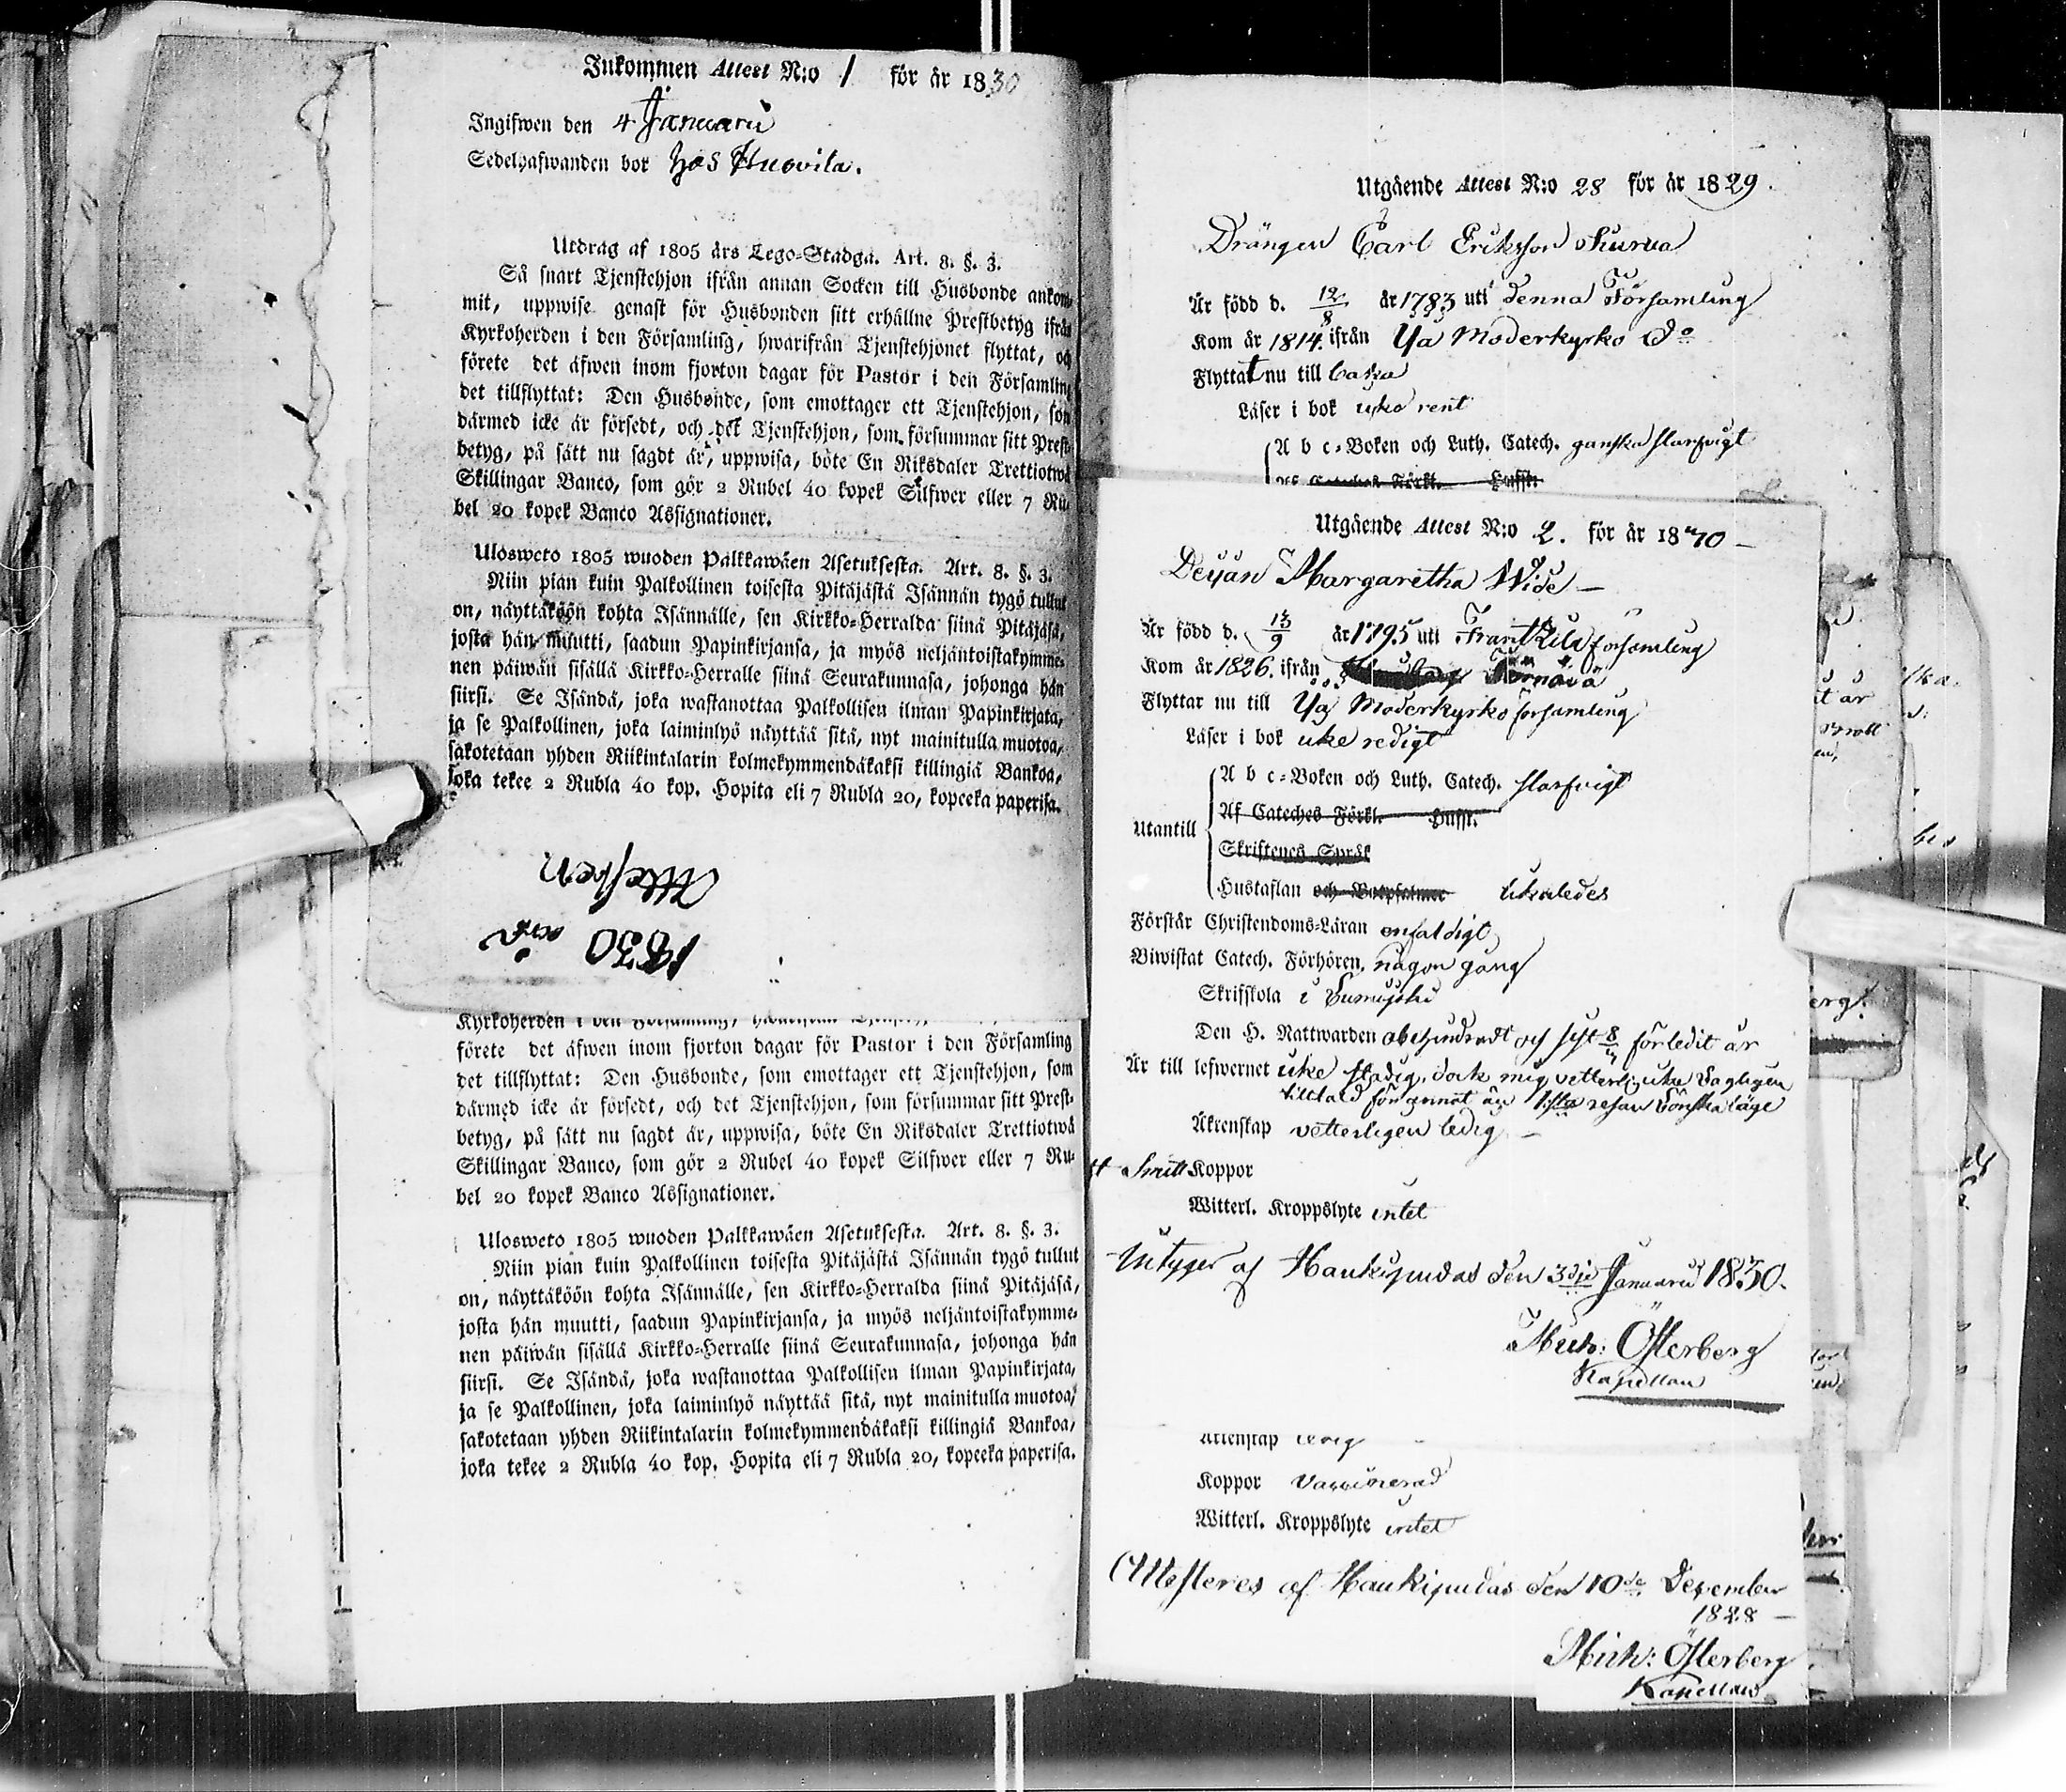 Inkommen Attest N:o 1 för år 1830
Ingifwen den 4 Januarii
Sedelhafwanden bor hos Huovila.
Utdrag af 1805 års Lego-Stadga. Art. 8. §. 3.
Så snart Tjenstehjon ifrån annan Socken till Husbonde ankom-
mit, uppwise genast för Husbonden sitt erhållne Prestbetyg ifrån
Kyrkoherden i den Församling, hwarifrån Tjenstehjonet flyttat, och
förete det äfwen inom fjorton dagar för Pastor i den Församling
det tillflyttat: Den Husbonde, som emottager ett Tjenstehjon, som
därmed icke är försedt, och det Tjenstehjon, som försummar sitt Prest-
betyg, på sätt nu sagdt är, uppwisa, böte En Riksdaler Trettiotwå
Skillingar Banco, som gör 2 Rubel 40 kopek Silfwer eller 7 Ru-
bel 20 kopek Banco Assignationer.
Ulosweto 1805 wuoden Palkkawäen Asetuksesta. Art. 8. §. 3.
Niin pian kuin Palkollinen toisesta Pitäjästä Isännän tygö tullut
on, näyttäköön kohta Isännälle, sen Kirkko-Herralda siinä Pitäjäsä,
josta hän muutti, saadun Papinkirjansa, ja myös neljäntoistakymme-
nen päiwän sisällä Kirkko-Herralle siinä Seurakunnasa, johonga hän
siirsi. Se Isändä, joka wastanottaa Palkollisen ilman Papinkirjata,
ja se Palkollinen, joka laiminlyö näyttää sitä, nyt mainitulla muotoa,
sakotetaan yhden Riikintalarin kolmekymmendäkaksi killingiä Bankoa,
joka tekee 2 Rubla 40 kop. Hopita eli 7 Rubla 20, kopeeka paperisa.
Attesten
1830 års
Kyrkoherden i den Församling,
förete det äfwen inom fjorton dagar för Pastor i den Församling
det tillflyttat: Den Husbonde, som emottager ett Tjenstehjon, som
därmed icke är försedt, och det Tjenstehjon, som försummar sitt Prest-
betyg, på sätt nu sagdt är, uppwisa, böte En Riksdaler Trettiotwå
Skillingar Banco, som gör 2 Rubel 40 kopek Silfwer eller 7 Ru-
bel 20 kopek Banco Assignationer.
Ulosweto 1805 wuoden Palkkawäen Asetuksesta. Art. 8. §. 3.
Niin pian kuin Palkollinen toisesta Pitäjästä Isännän tygö tullut
on, näyttäköön kohta Isännälle, sen Kirkko-Herralda siinä Pitäjäsä,
josta hän muutti, saadun Papinkirjansa, ja myös neljäntoistakymme-
nen päiwän sisällä Kirkko-Herralle siinä Seurakunnasa, johonga hän
siirsi. Se Isändä, joka wastanottaa Palkollisen ilman Papinkirjata,
ja se Palkollinen, joka laiminlyö näyttää sitä, nyt mainitulla muotoa,
sakotetaan yhden Riikintalarin kolmekymmendäkaksi killingiä Bankoa,
joka tekee 2 Rubla 40 kop. Hopita eli 7 Rubla 20, kopeeka paperisa.
Utgående Attest N:o 28 för år 1829.
Drängen Carl Eriksson
Är född d. 12/8 år 1783 uti denna Församling
Kom år 1814. ifrån Ijå Moderkyrko do
Flyttat nu till
Läser i bok icke rent
A b c-Boken och Luth. Catech. ganska slarfvigt
Af Cateches Förkl. Hufst.
Utgående Attest N:o 2. för år 1830
Deijan Margaretha Wide
Är född d. 13/9 år 1795 uti Frantzila församling
Kom år 1826. ifrån Törnävä
Flyttar nu till Ijå Moderkyrko församling
Läser i bok icke redigt
Utantill
A b c-Boken och Luth. Catech. slarfvigt
Af Cateches Förkl. Hufst.
Skriftenes Språk
Hustaflan och Botpsalmer likaledes
Förstår Christendoms-Läran enfaldigt
Biwistat Catech. Förhören någon gång
Skrifskola i
Den H. Nattwarden obehindradt och sist förledit år
Är till lefwernet icke stadig, dock mig vetterl: icke lagligen
tilltald för annat än 1sta resan Lönskaläge
Äktenskap vetterligen ledig
haft Koppor
Witterl. Kroppslyte intet
Intygar af Haukipudas den 3dje Januarii 1830.
Mich: Österberg
Kapellan
Äktenskap ledig
Koppor vaccinerad
Witterl. Kroppslyte intet
Attesteres af Haukipudas den 10de December
1828
Mich: Österberg
Kapellan